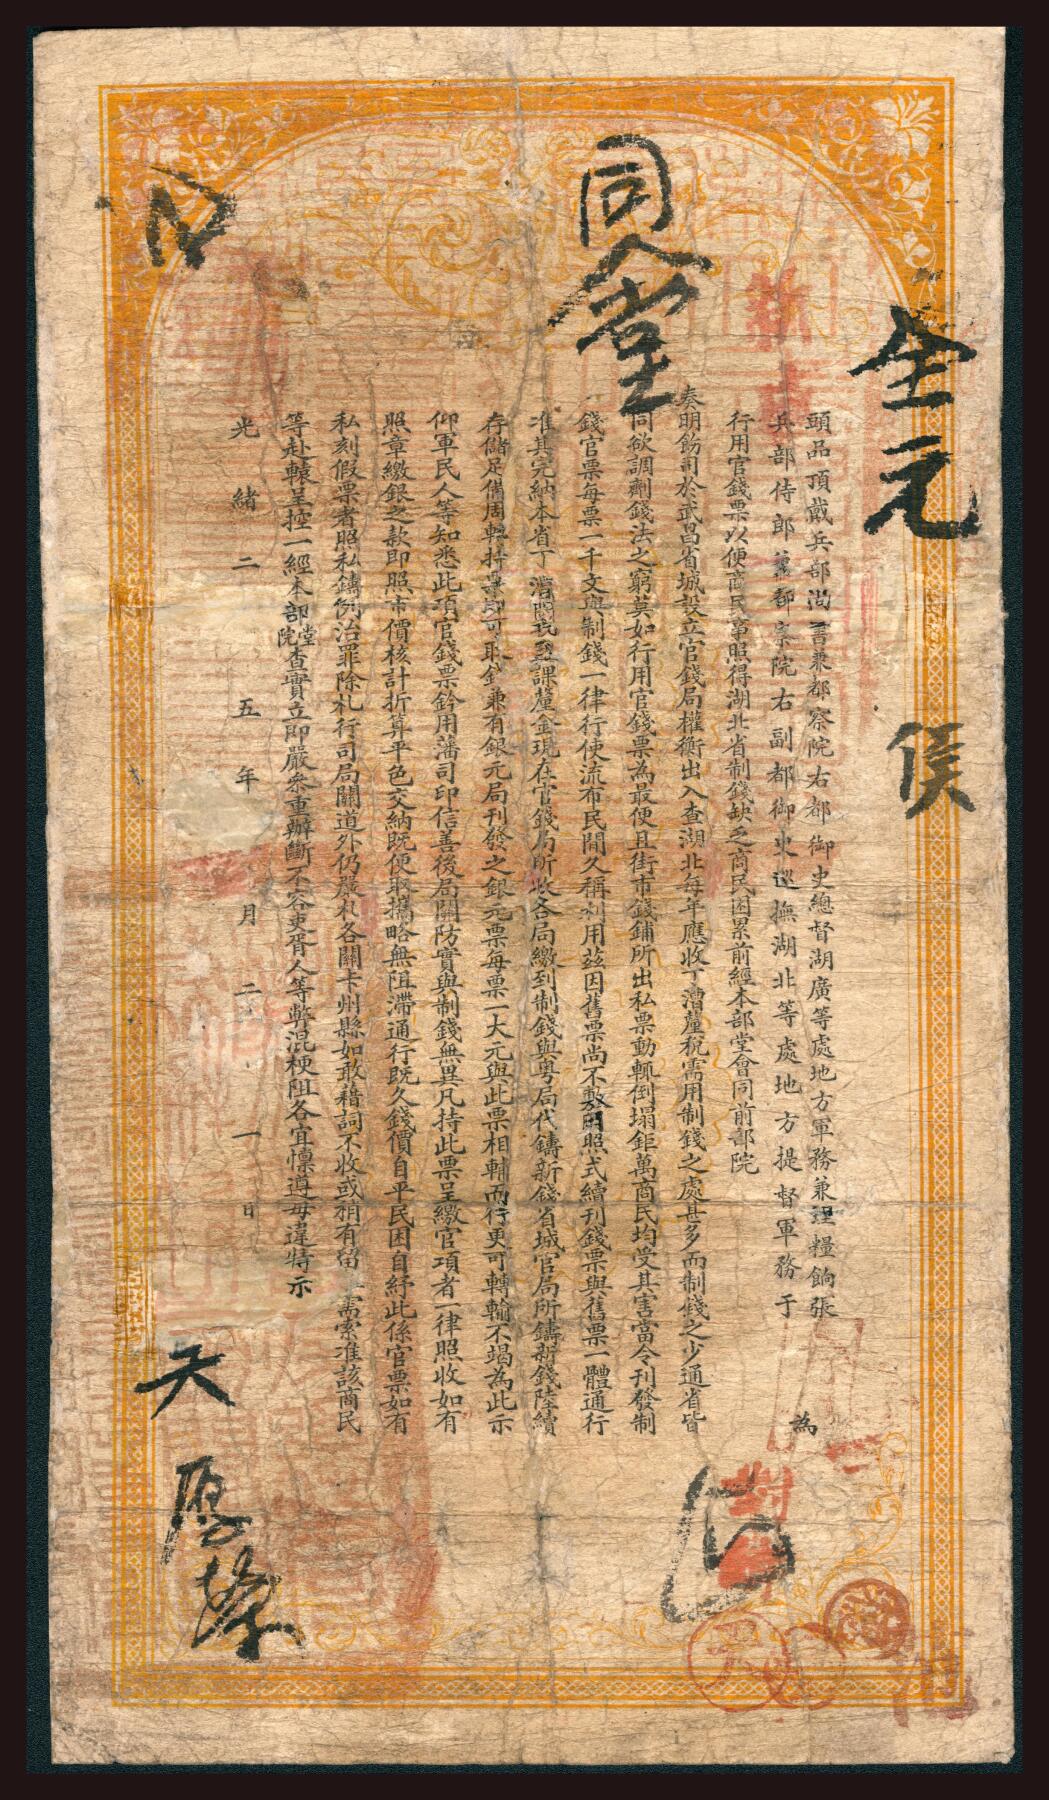 全元
俟
同人堂
頭品頂戴兵部尚書兼都察院右都御史總督湖廣等處地方軍務兼理糧餉張
兵部侍郎兼都察院右副都御史巡撫湖北等處地方提督軍務于
為
行用官錢票以便商民事照得湖北省制錢缺乏商民困累前經本部堂會同前部院
奏明飭司於武昌省城設立官錢局權衡出入查湖北每年應收丁漕釐稅需用制錢之處甚多而制錢之少通省皆
同欲調劑錢法之窮莫如行用官錢票為最便且街市錢鋪所出私票動輒倒塌鉅萬商民均受其害當令刊發制
錢官票每票一千文與制錢一律行使流布民間久稱利用茲因舊票尚不敷用照式續刊錢票與舊票一體通行
准其完納本省丁漕關稅鹽課釐金現在官錢局所收各局繳到制錢與粵局代鑄新錢省城官局所鑄新錢陸續
存儲足備周轉持票即可取錢兼有銀元局刊發之銀元票每票一大元與此票相輔而行更可轉輸不竭為此示
仰軍民人等知悉此項官錢票鈐用藩司印信善後局關防實與制錢無異凡持此票呈繳官項者一律照收如有
照章繳銀之款即照市價核計折算平色交納既便取攜略無阻滯通行既久錢價自平民困自紓此係官票如有
私刻假票者照私鑄例治罪除札行司局關道外仍嚴札各關卡州縣如敢藉詞不收或稍有留需索准該商民
等赴轅呈控一經本部堂院查實立即嚴參重辦斷不容吏胥人等弊混梗阻各宜懍遵毋違特示
光緒二五年五月二一日
天
厚
對